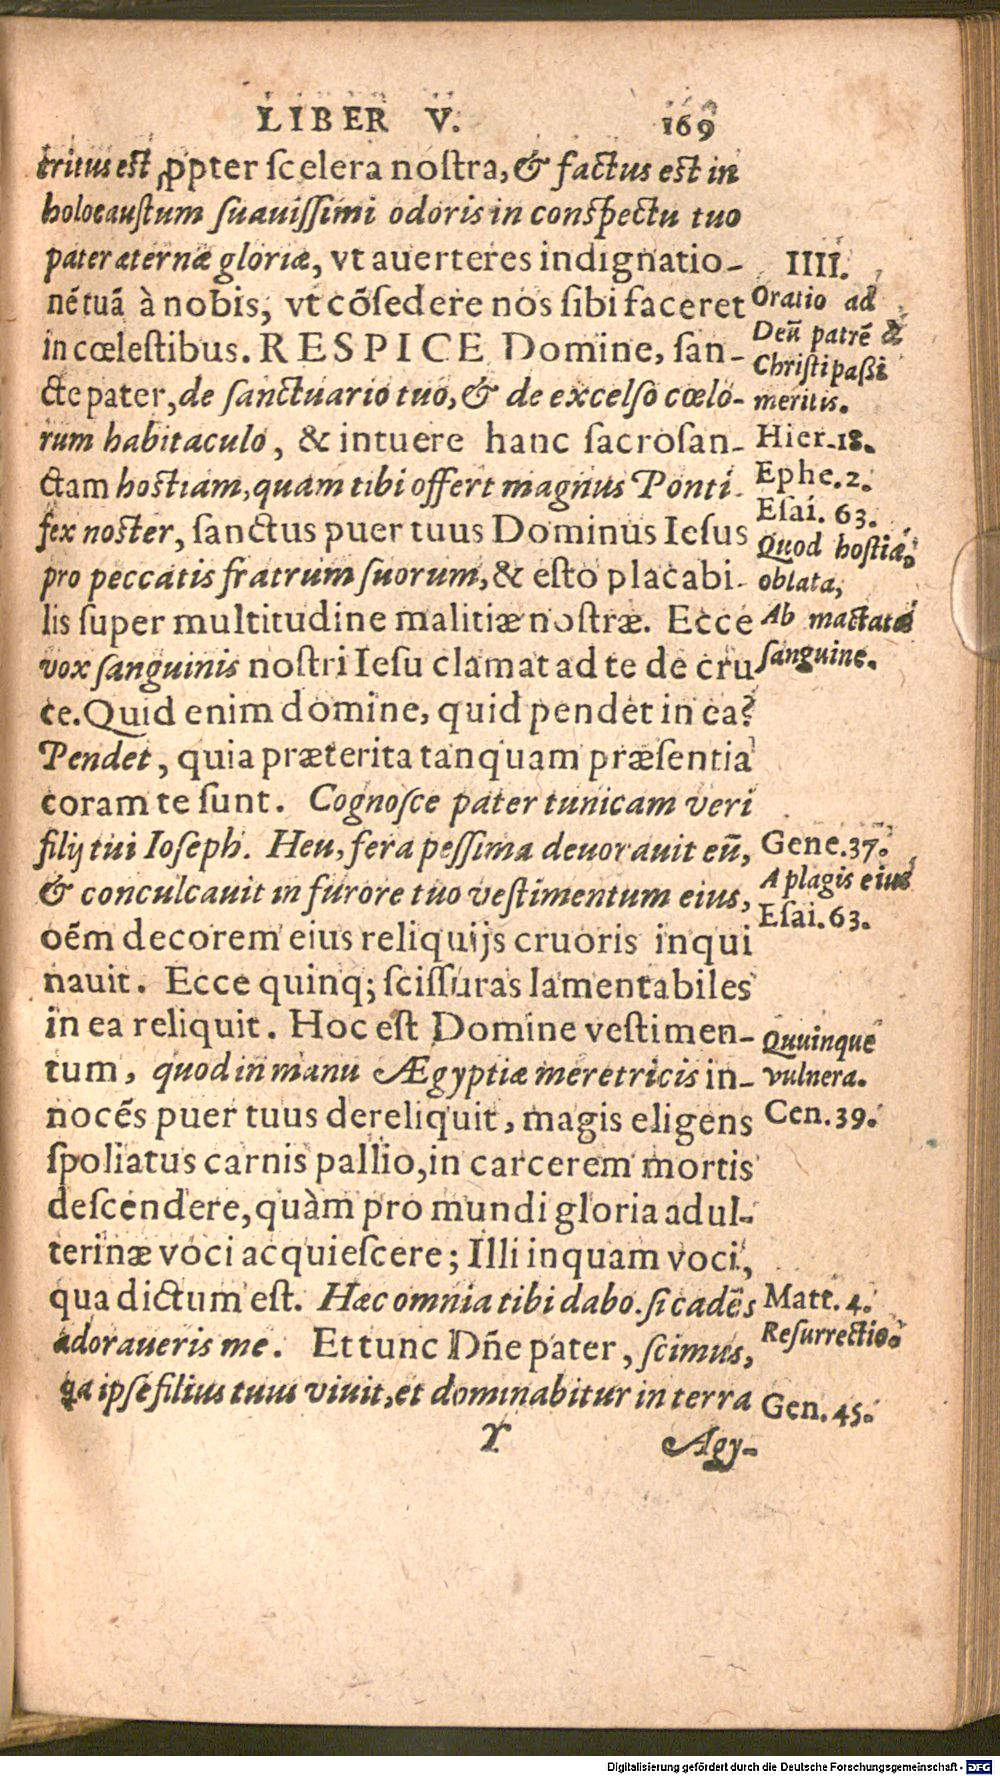 LIBER V. 169
tritus est ꝓpter scelera nostra, & factus est in
holocaustum suauissimi odoris in conspectu tuo
pater æternæ gloriæ, vt auerteres indignatio-
nē tuā à nobis, vt cōsedere nos sibi faceret
in cœlestibus. RESPICE Domine, san-
cte pater, de sanctuario tuo, & de excelso cœlo-
rum habitaculo, & intuere hanc sacrosan-
ctam hostiam, quam tibi offert magnus Ponti-
fex noster, sanctus puer tuus Dominus Iesus
pro peccatis fratrum suorum, & esto placabi-
lis super multitudine malitiæ nostræ. Ecce
vox sanguinis nostri Iesu clamat ad te de cru
ce. Quid enim domine, quid pendet in ea?
Pendet, quia præterita tanquam præsentia
coram te sunt. Cognosce pater tunicam veri
filij tui Ioseph. Heu, fera pessima deuorauit eū,
& conculcauit in furore tuo vestimentum eius,
oēm decorem eius reliquijs cruoris inqui
nauit. Ecce quinq; scissuras lamentabiles
in ea reliquit. Hoc est Domine vestimen-
tum, quod in manu Ægyptiæ meretricis in-
nocēs puer tuus dereliquit, magis eligens
spoliatus carnis pallio, in carcerem mortis
descendere, quàm pro mundi gloria adul-
terinæ voci acquiescere; Illi inquam voci,
qua dictum est. Hæc omnia tibi dabo. si cadēs
adoraueris me. Et tunc Dñe pater, scimus,
qa ipse filius tuus viuit, et dominabitur in terra
Y Ægy-
IIII.
Oratio ad
Deū patrē &
Christi paßi
meritis.
Hier. 18.
Ephe. 2.
Esai. 63.
Quod hostia
oblata,
Ab mactatæ
sanguine.
Gene. 37.
A plagis eius
Esai. 63.
Quuinque
vulnera.
Cen. 39.
Matt. 4.
Resurrectio.
Gen. 45.
Digitalisierung gefördert durch die Deutsche Forschungsgemeinschaft - DFG